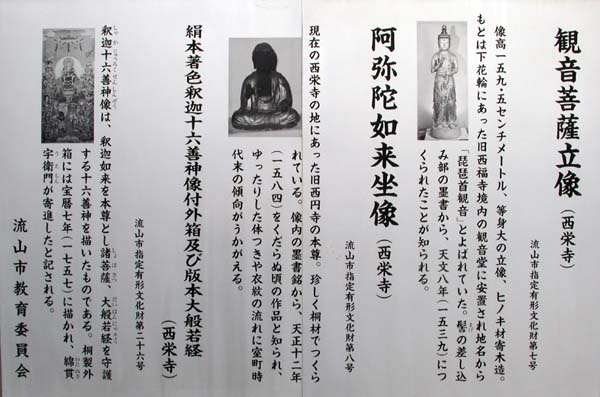 観音菩薩立像（西栄寺）
流山市指定有形文化財第七号
像高一五九・五センチメートル、等身大の立像、ヒノキ材寄木造。
もとは下花輪にあった旧西福寺境内の観音堂に安置され地名から
「琵琶首観音」とよばれていた。髻の差し込
み部の墨書から、天文八年（一五三九）につ
くられたことが知られる。
阿弥陀如来坐像（西栄寺）
流山市指定有形文化財第八号
現在の西栄寺の地にあった旧西円寺の本尊。珍しく桐材でつくら
れている。像内の墨書銘から、天正十二年
（一五八四）をくだらぬ頃の作品と知られ、
ゆったりした体つきや衣紋の流れに室町時
代末の傾向がうかがえる。
絹本著色釈迦十六善神像付外箱及び版本大般若経
（西栄寺）
流山市指定有形文化財第二十六号
釈迦十六善神像は、釈迦如来を本尊とし諸菩薩、大般若経を守護
する十六善神を描いたものである。桐製外
箱には宝暦七年（一七五七）に描かれ、綿貫
宇衛門が寄進したと記される。
流山市教育委員会